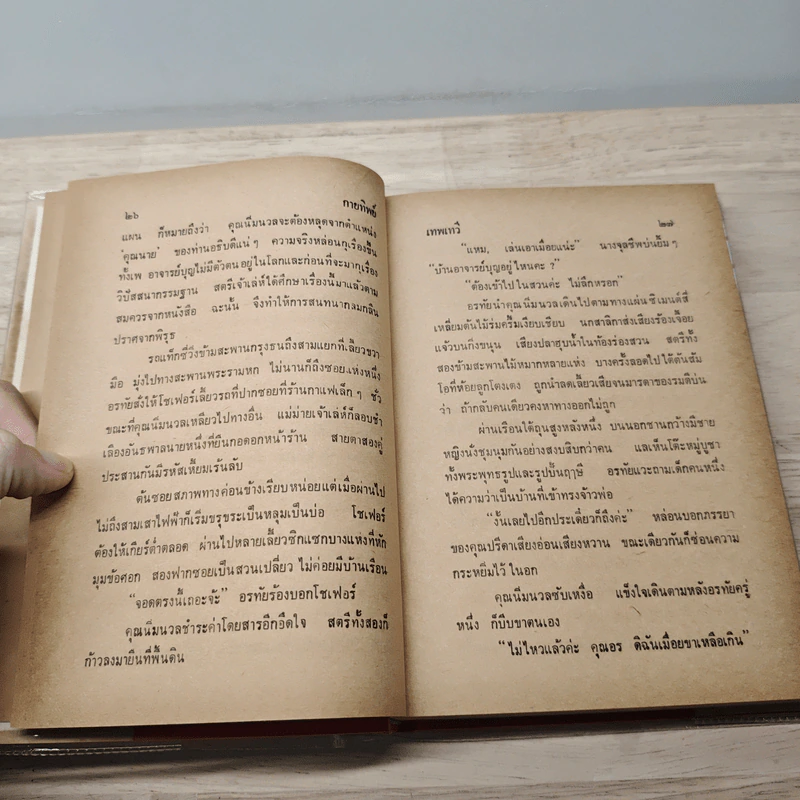 ๒๖ กายทิพย์
แผน ก็หมายถึงว่า คุณนิ่มนวลจะต้องหลุดจากตำแหน่ง
'คุณนาย' ของท่านอธิบดีแน่ๆ ความจริงหล่อนกุเรื่องขึ้น
ทั้งเพ อาจารย์บุญไม่มีตัวตนอยู่ในโลกและก่อนที่จะมากุเรื่อง
วิปัสสนากรรมฐาน สตรีเจ้าเล่ห์ได้ศึกษาเรื่องนี้มาแล้วตาม
สมควรจากหนังสือ ฉะนั้น จึงทำให้การสนทนากลมกลืน
ปราศจากพิรุธ
รถแท็กซี่วิ่งข้ามสะพานกรุงธนถึงสามแยกที่เลี้ยวขวา
มือ มุ่งไปทางสะพานพระรามหก ไม่นานก็ถึงซอยแห่งหนึ่ง
อรทัยสั่งให้โชเฟอร์เลี้ยวรถที่ปากซอยที่ร้านกาแฟเล็กๆ ชั่ว
ขณะที่คุณนิ่มนวลเหลียวไปทางอื่น แม่ม่ายเจ้าเล่ห์ก็ลอบชำ
เลืองอันธพาลนายหนึ่งที่ยืนกอดอกหน้าร้าน สายตาสองคู่
ประสานกันมีรหัสเหี้ยมเร้นลับ
ต้นซอยสภาพทางค่อนข้างเรียบหน่อยแต่เมื่อผ่านไป
ไม่ถึงสามเสาไฟฟ้าก็เริ่มขรุขระเป็นหลุมเป็นบ่อ โชเฟอร์
ต้องให้เกียร์ต่ำตลอด ผ่านไปหลายเลี้ยวซิกแซกบางแห่งที่หัก
มุมข้อศอก สองฟากซอยเป็นสวนเปลี่ยว ไม่ค่อยมีบ้านเรือน
"จอดตรงนี้เถอะจ้ะ" อรทัยร้องบอกโชเฟอร์
คุณนิ่มนวลชำระค่าโดยสารอึกอึดใจ สตรีทั้งสองก็
ก้าวลงมายืนที่พื้นดิน
เทพเทวี ๒๗
"แหม, เล่นเอาเมื่อยแน่ะ" นางจุลชีพบ่นยิ้มๆ
"บ้านอาจารย์บุญอยู่ไหนคะ ?"
"ต้องเข้าไปในสวนค่ะ ไม่ลึกหรอก"
อรทัยนำคุณนิ่มนวลเดินไปตามทางแผ่นซิเมนต์สี่
เหลี่ยมต้นไม้ร่มครึ้มเงียบเชียบ นกสาลิกาส่งเสียงร้องเจื้อย
แจ้วบนกิ่งขนุน เสียงปลาฮุบน้ำในท้องร่องสวน สตรีทั้ง
สองข้ามสะพานไม้หมากหลายแห่ง บางครั้งลอดไปใต้ต้นส้ม
โอที่ห้อยลูกโตงเตง ถูกนำลดเลี้ยวเสียจนมารดาของรมดีบ่น
ว่า ถ้ากลับคนเดียวคงหาทางออกไม่ถูก
ผ่านเรือนใต้ถุนสูงหลังหนึ่ง บนนอกชานกว้างมีชาย
หญิงนั่งชุมนุมกันอย่างสงบสิบกว่าคน แลเห็นโต๊ะหมู่บูชา
ทั้งพระพุทธรูปและรูปปั้นฤาษี อรทัยแวะถามเด็กคนหนึ่ง
ได้ความว่าเป็นบ้านที่เข้าทรงจ้าวพ่อ
"งั้นเลยไปอีกประเดี๋ยวก็ถึงค่ะ" หล่อนบอกภรรยา
ของคุณปรีดาเสียงอ่อนเสียงหวาน ขณะเดียวกันก็ซ่อนความ
กระหยิ่มไว้ในอก
คุณนิ่มนวลซับเหงื่อ แข็งใจเดินตามหลังอรทัยครู่
หนึ่ง ก็บีบขาตนเอง
"ไม่ไหวแล้วค่ะ คุณอร ดิฉันเมื่อยขาเหลือเกิน"